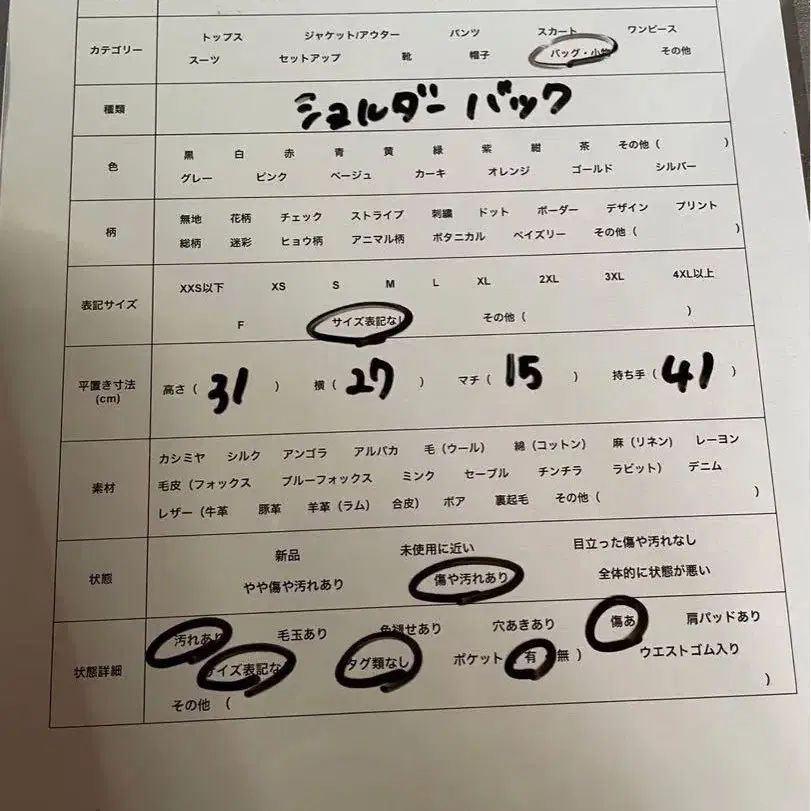 カテゴリー
トップス ジャケット/アウター パンツ スカート ワンピース
スーツ セットアップ 靴 帽子 バッグ・小物 その他
種類
ショルダー バック
色
黒 白 赤 青 黄 緑 紫 紺 茶 その他 ( )
グレー ピンク ベージュ カーキ オレンジ ゴールド シルバー
柄
無地 花柄 チェック ストライプ 刺繍 ドット ボーダー デザイン プリント
総柄 迷彩 ヒョウ柄 アニマル柄 ボタニカル ペイズリー その他 ( )
表記サイズ
XXS以下 XS S M L XL 2XL 3XL 4XL以上
F サイズ表記なし その他 ( )
平置き寸法
(cm)
高さ ( 31 ) 横 ( 27 ) マチ ( 15 ) 持ち手 ( 41 )
素材
カシミヤ シルク アンゴラ アルパカ 毛 (ウール) 綿 (コットン) 麻 (リネン) レーヨン
毛皮 (フォックス ブルーフォックス ミンク セーブル チンチラ ラビット) デニム
レザー (牛革 豚革 羊革 (ラム) 合皮) ボア 裏起毛 その他 ( )
状態
新品 未使用に近い 目立った傷や汚れなし
やや傷や汚れあり 傷や汚れあり 全体的に状態が悪い
状態詳細
汚れあり 毛玉あり 色褪せあり 穴あきあり 傷あ 肩パッドあり
サイズ表記な タグ類なし ポケット 有 無 ) ウエストゴム入り
その他 ( )